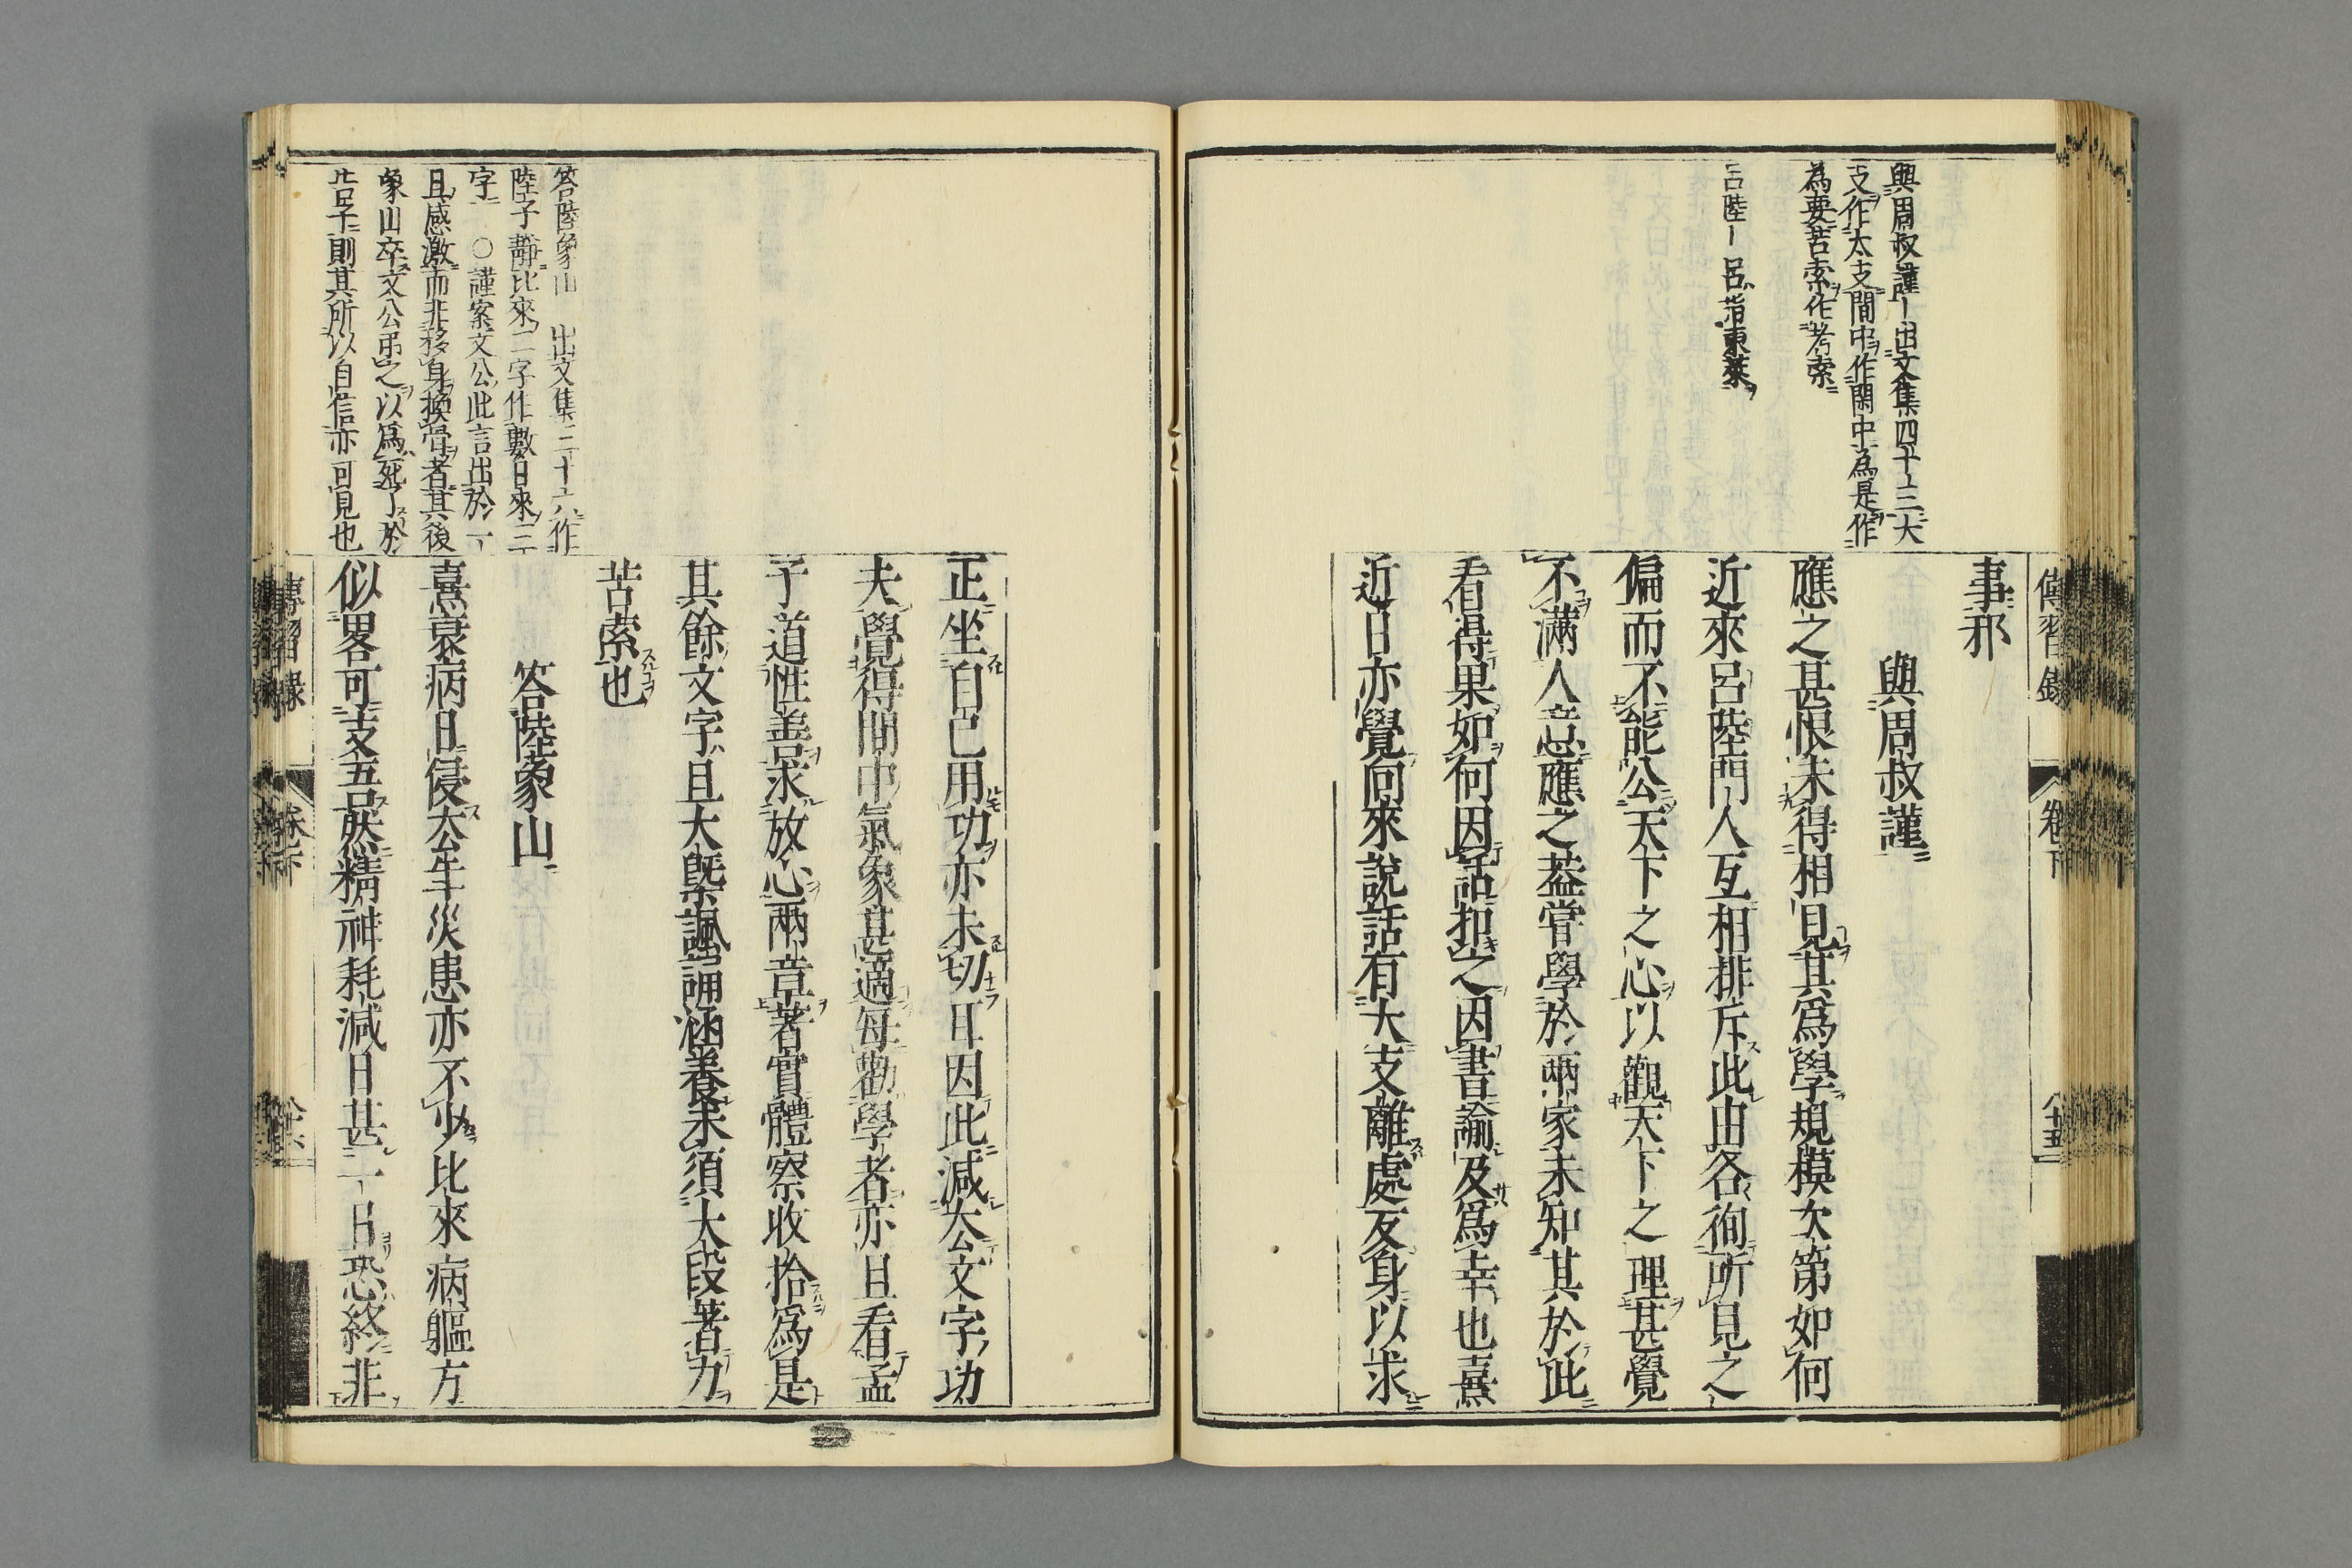 傳習錄
卷下
八十五
與周叔謹ー出文集四十三大
支作太支間中作閑中為是作
為要苦索作考索
呂陸ー呂指東萊
事邪
與周叔謹
應之甚恨未得相見其爲學規模次第如何
近來呂陸門人互相排斥此由各徇所見之
偏而不能公天下之心以觀天下之理甚覺
不滿人意應之葢嘗學於兩家未知其於此
看得果如何因話扣之因書諭及爲幸也熹
近日亦覺向來說話有大支離處反身以求
正坐自己用功亦未切耳因此減去文字功
夫覺得間中氣象甚適每勸學者亦且看孟
子道性善求放心兩章著實體察收拾爲是
其餘文字且大槩諷誦涵養未須大段著力
苦索也
答陸象山
熹衰病日侵去年災患亦不少比來病軀方
似畧可支吾然精神耗減日甚一日恐終非
答陸象山 出文集三十六作
陸子靜比來二字作數日來三
字 ○謹案文公此言出於一
且感激而非移身換骨者其後
象山卒文公弔之以爲死了於
告子則其所以自信亦可見也
傳習錄
卷下